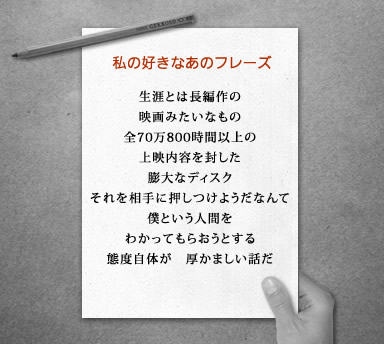 私の好きなあのフレーズ
生涯とは長編作の
映画みたいなもの
全70万800時間以上の
上映内容を封した
膨大なディスク
それを相手に押しつけようだなんて
僕という人間を
わかってもらおうとする
態度自体が　厚かましい話だ